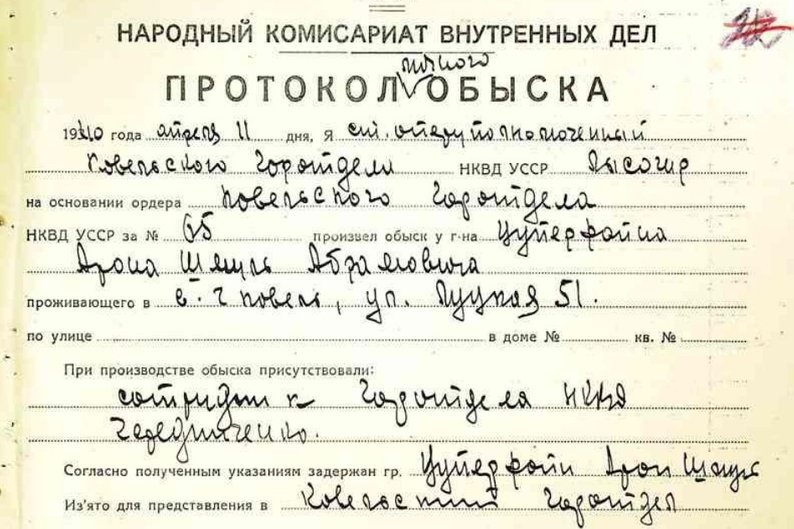 НАРОДНЫЙ КОМИСАРИАТ ВНУТРЕННЫХ ДЕЛ
личного
ПРОТОКОЛ ОБЫСКА
1940 года апреля 11 дня, Я ст. оперуполномоченный
Ковельского Горотдела НКВД УССР
на основании ордера Ковельского Горотдела
НКВД УССР за № 65 произвел обыск у г-на Цукерфайна
Арона Шмуль Абрамовича
проживающего в г. Ковель, ул. Луцкая 51.
по улице в доме № кв. №
При производстве обыска присутствовали:
сотрудник Горотдела НКВД
Чередниченко.
Согласно полученным указаниям задержан гр. Цукерфайн Арон Шмуль
Из'ято для представления в Ковельский Горотдел